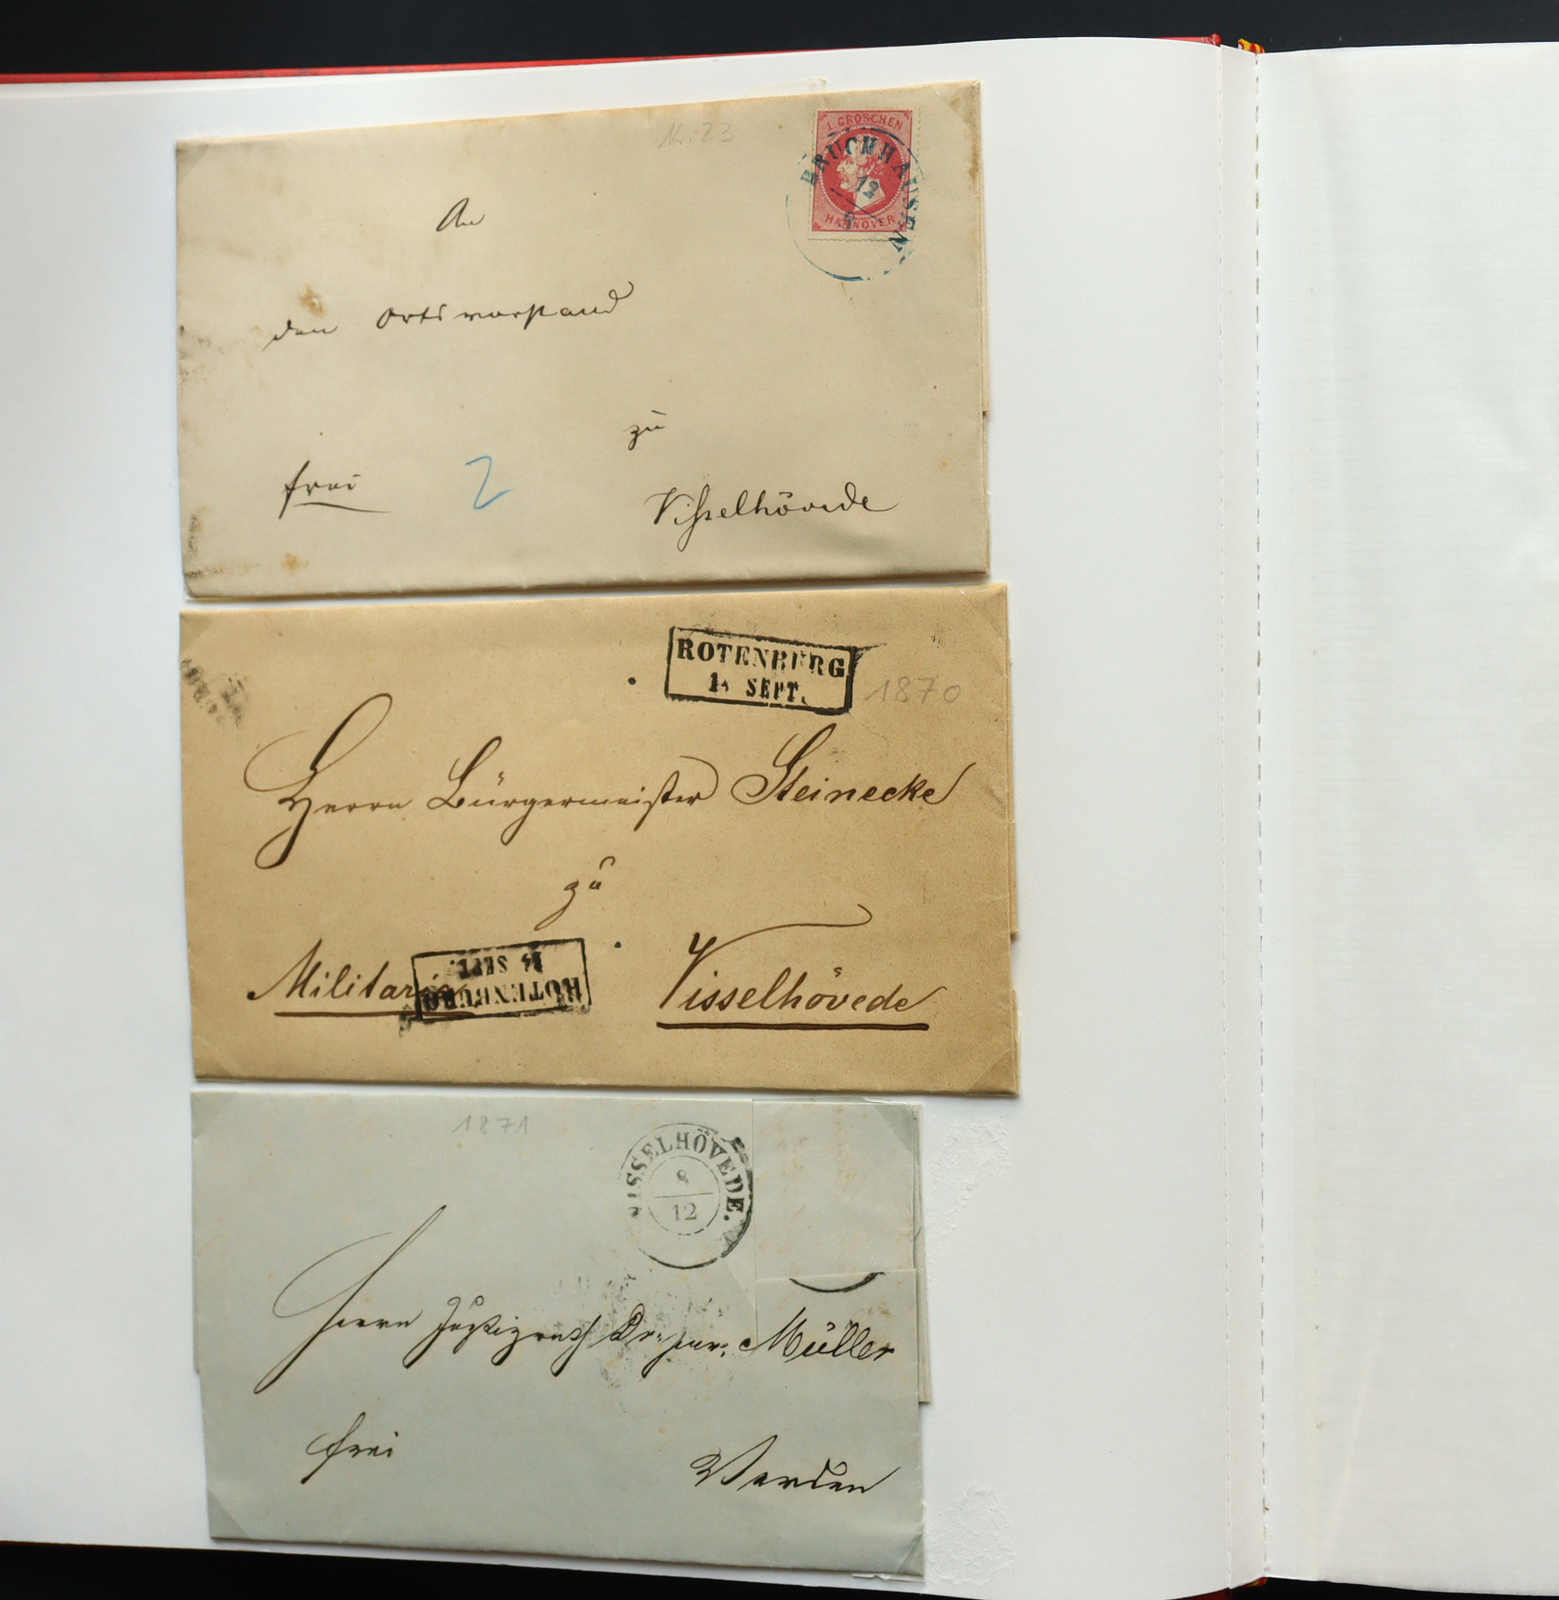 1. GROSCHEN
HANNOVER
BRUCHHAUSEN
12
An
den Ortsvorstand
zu
frei
2
Visselhövede
ROTENBURG
SEPT.
1870
Herrn Bürgermeister Steinecke
zu
Militaria
ROTENBURG
14 SEPT.
Visselhövede
1871
VISSELHÖVEDE.
8
12
Herrn Justizrath Dr. jur. Müller
frei
Verden